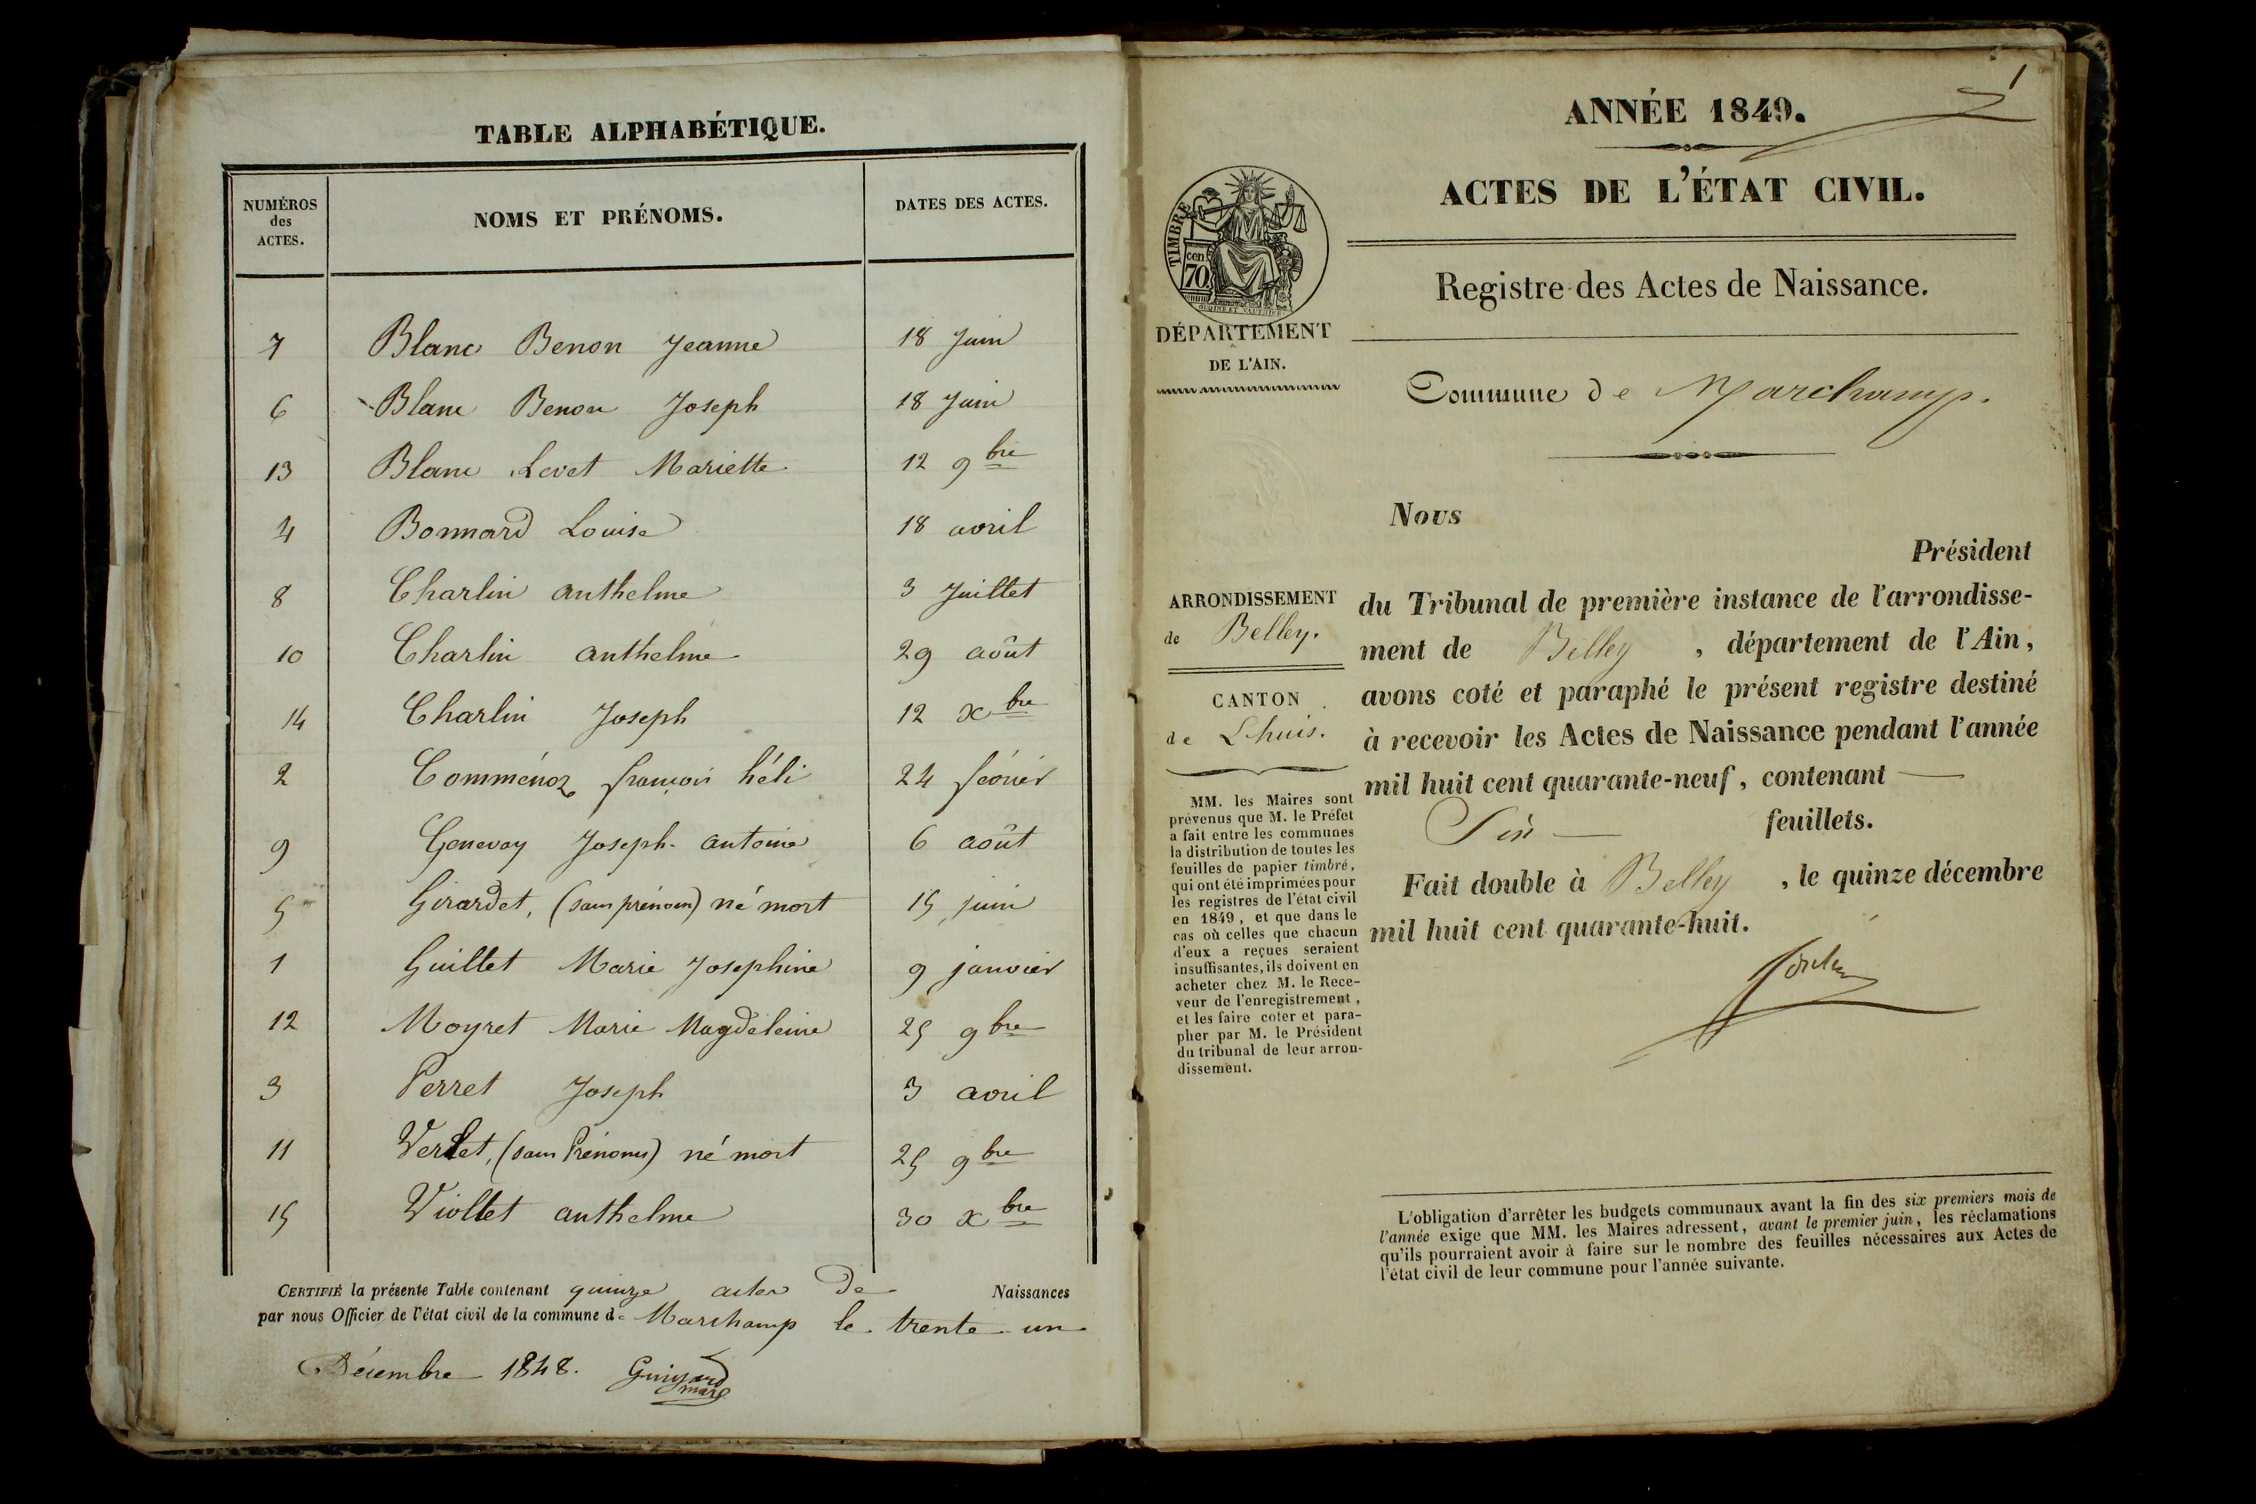 TABLE ALPHABÉTIQUE.
NUMÉROS des ACTES. NOMS ET PRÉNOMS. DATES DES ACTES.
7 Blanc Benon Jeanne 18 Juin
6 Blanc Benon Joseph 18 Juin
13 Blanc Levet Mariette 12 9bre
4 Bonnard Louise 18 avril
8 Charlin anthelme 3 Juillet
10 Charlin anthelme 29 août
14 Charlin Joseph 12 xbre
2 Comménoz françois héli 24 février
9 Genevay Joseph-antoine 6 août
5 Girardet, (sans prénom) né mort 15 juin
1 Guillet Marie Josephine 9 janvier
12 Moyret Marie Magdeleine 25 9bre
3 Perret Joseph 3 avril
11 Verlet, (sans Prénoms) né mort 25 9bre
15 Viollet anthelme 30 xbre
CERTIFIÉ la présente Table contenant quinze actes de Naissances
par nous Officier de l'état civil de la commune de Marchamp le trente un
Décembre 1848. maire
1
ANNÉE 1849.
ACTES DE L'ÉTAT CIVIL.
TIMBRE
70 cen
Registre des Actes de Naissance.
DÉPARTEMENT
DE L'AIN.
Commune de Marchamp.
Nous
Président
ARRONDISSEMENT
de Belley.
CANTON
de Lhuis.
du Tribunal de première instance de l'arrondisse-
ment de Belley, département de l'Ain,
avons coté et paraphé le présent registre destiné
à recevoir les Actes de Naissance pendant l'année
mil huit cent quarante-neuf, contenant
Six feuillets.
Fait double à Belley, le quinze décembre
mil huit cent quarante-huit.
MM. les Maires sont
prévenus que M. le Préfet
a fait entre les communes
la distribution de toutes les
feuilles de papier timbré,
qui ont été imprimées pour
les registres de l'état civil
en 1849, et que dans le
cas où celles que chacun
d'eux a reçues seraient
insuffisantes, ils doivent en
acheter chez M. le Rece-
veur de l'enregistrement,
et les faire coter et para-
pher par M. le Président
du tribunal de leur arron-
dissement.
L'obligation d'arrêter les budgets communaux avant la fin des six premiers mois de
l'année exige que MM. les Maires adressent, avant le premier juin, les réclamations
qu'ils pourraient avoir à faire sur le nombre des feuilles nécessaires aux Actes de
l'état civil de leur commune pour l'année suivante.